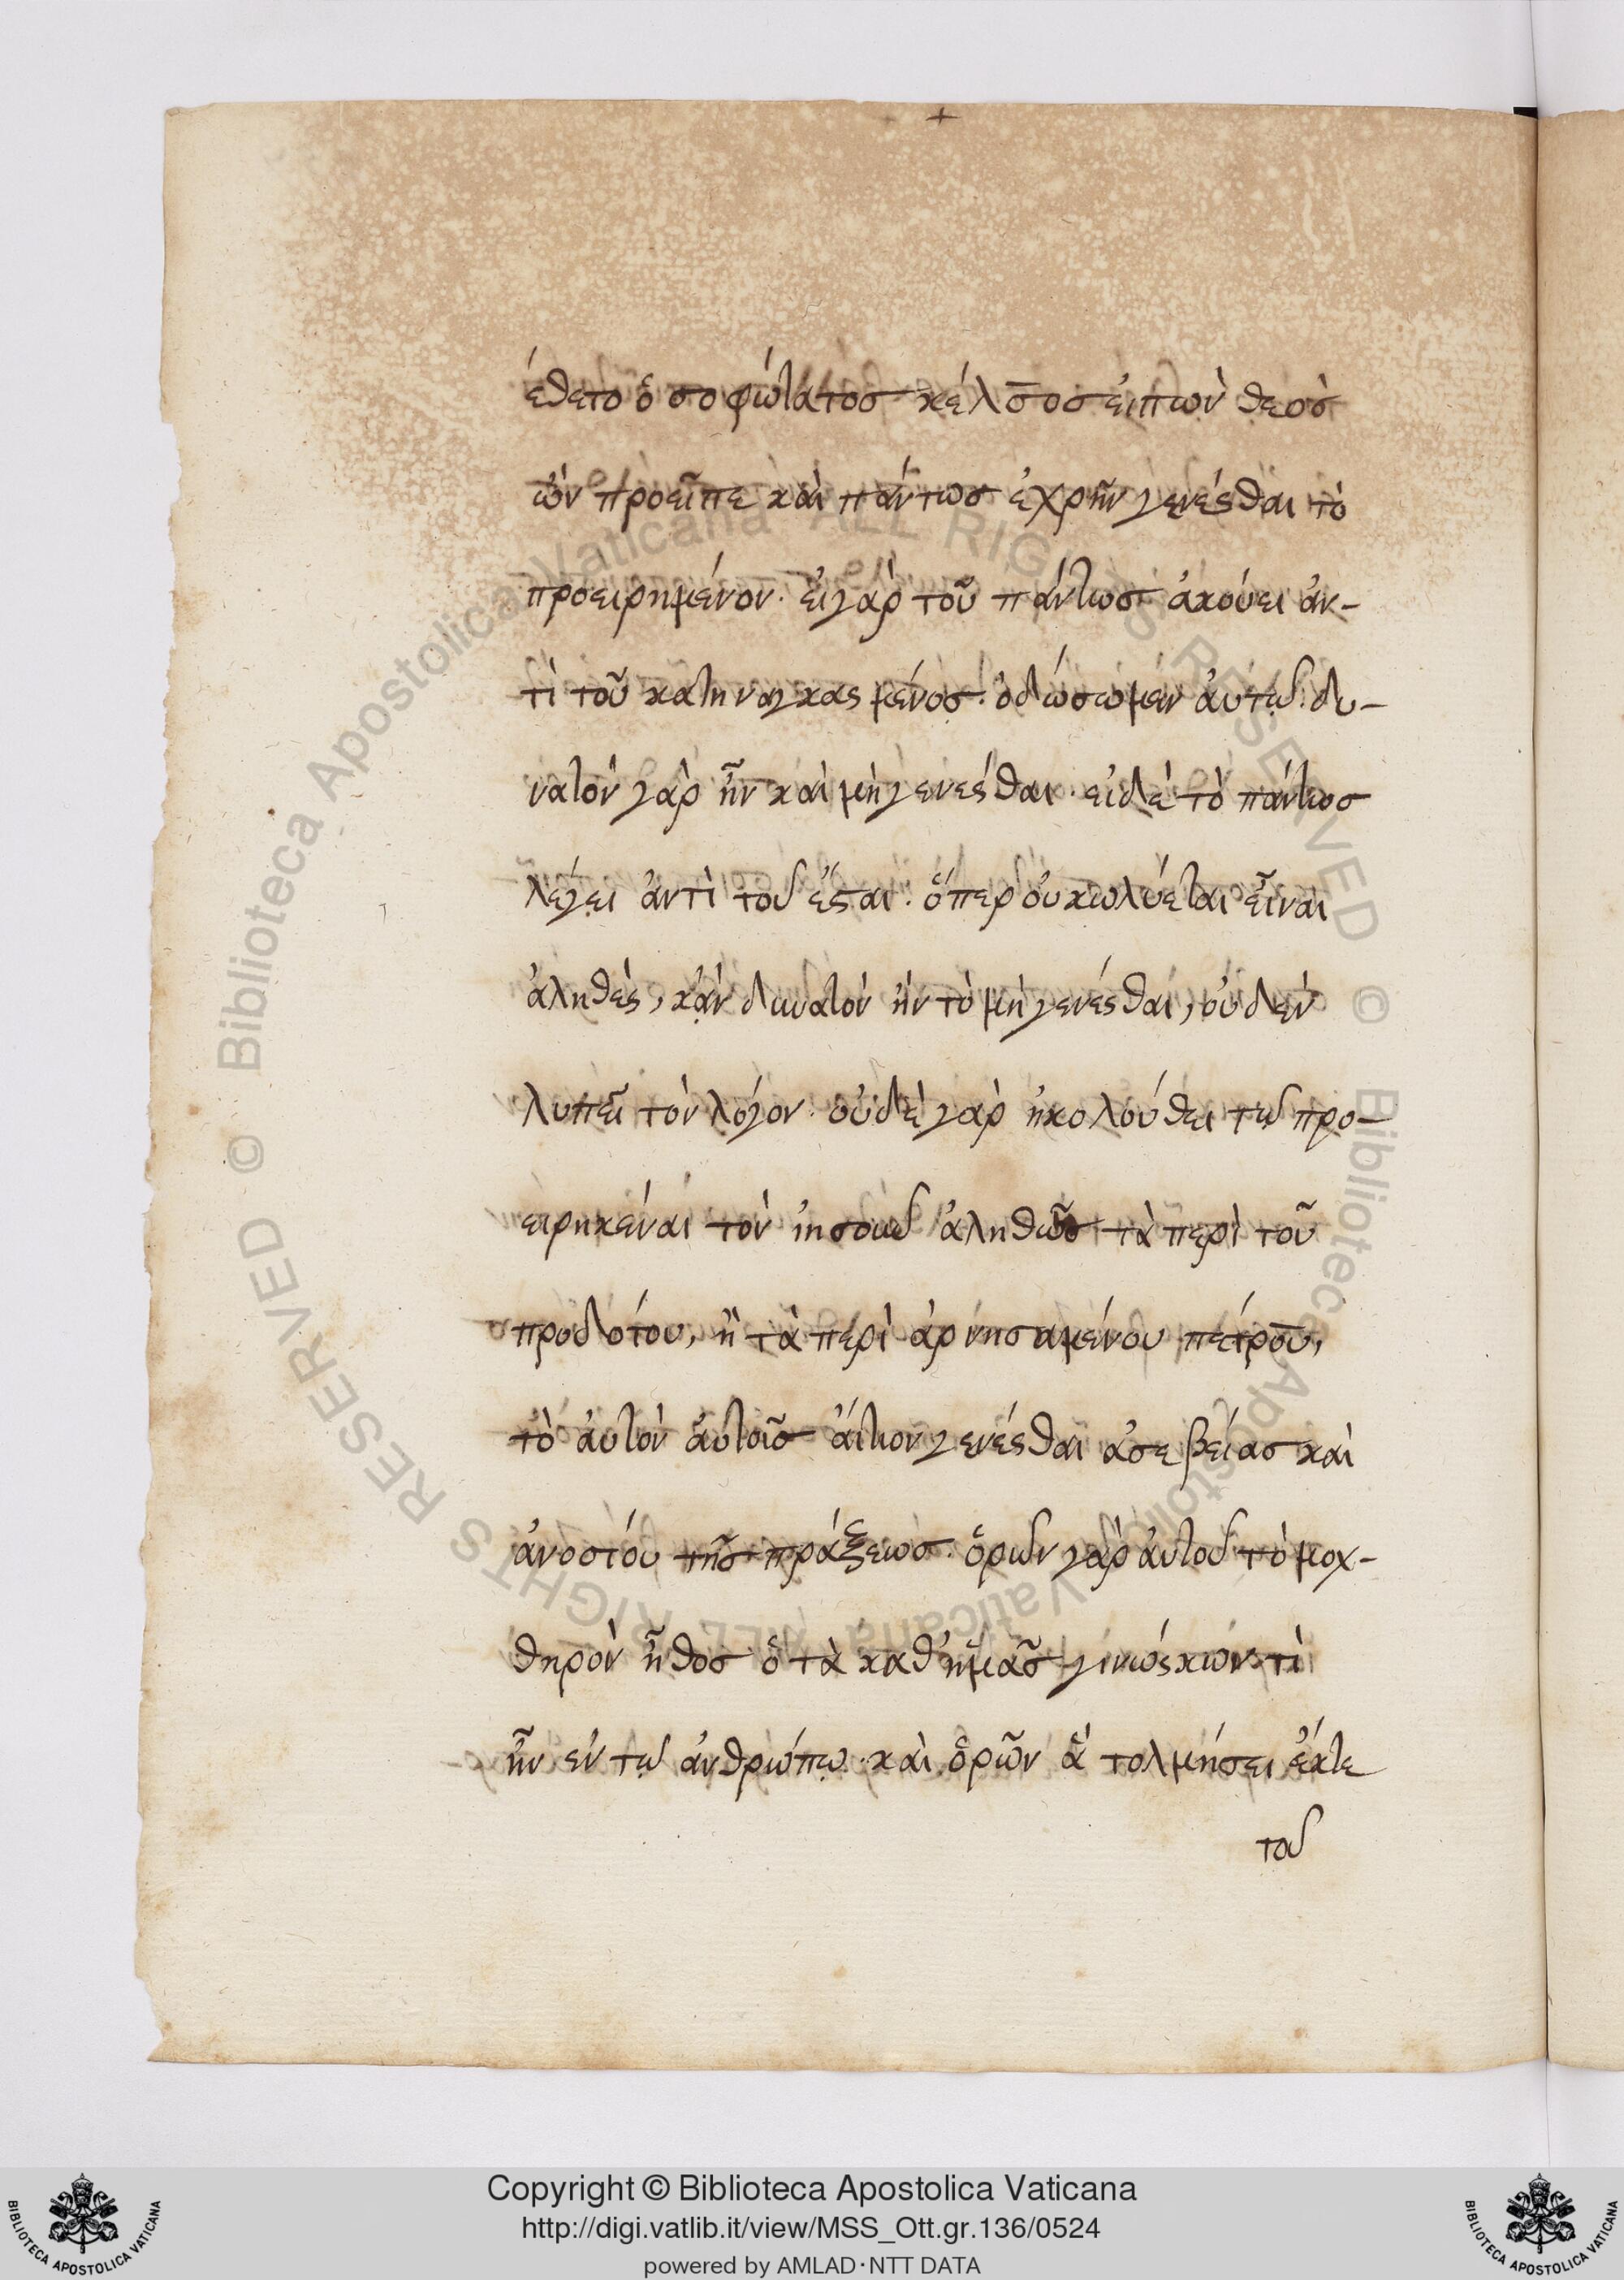 έθετο ὁ σοφώτατος κέλσος εἰπὼν θεὸς
ὢν προεῖπε καὶ πάντως ἐχρῆν γενέσθαι τὸ
προειρημένον· εἰ γὰρ τοῦ πάντως ἀκούει ἀν-
τὶ τοῦ κατηναγκασμένος. ὀ δώσωμεν ἀυτῶ. δυ-
νατὸν γὰρ ἦν καὶ μὴ γενέσθαι· εἰ δὲ τὸ πάντως
λέγει ἀντὶ τοῦ ἔσται. ὅπερ ὀυ κωλύεται εἶναι
ἀληθὲς, κἀν δυνατὸν ἠν τὸ μὴ γενέσθαι, οὐδὲν
λυπεῖ τὸν λόγον· οὐδὲ γὰρ ἠκολούθει τῶ προ-
ειρηκέναι τὸν ἰησοῦν ἀληθῶς τὰ περὶ τοῦ
προδότου, ἢ τὰ περὶ ἀρνησαμένου πέτρου,
τὸ ἀυτὸν ἀυτοῖς ἄιτιον γενέσθαι ἀσεβείας καὶ
ἀνοσίου τῆς πράξεως. ὁρῶν γὰρ ἀυτοῦ τὸ μοχ-
θηρὸν ἦθος ὁ τὰ καθ' ἡμᾶς γινώσκων τὶ
ἦν ἐν τῶ ἀνθρώπω· καὶ ὁρῶν ἃ τολμήσει ἔκ τε
τοῦ
Copyright © Biblioteca Apostolica Vaticana
http://digi.vatlib.it/view/MSS_Ott.gr.136/0524
powered by AMLAD·NTT DATA
BIBLIOTECA APOSTOLICA VATICANA
BIBLIOTECA APOSTOLICA VATICANA
© Biblioteca Apostolica Vaticana ALL RIGHTS RESERVED
© Biblioteca Apostolica Vaticana ALL RIGHTS RESERVED